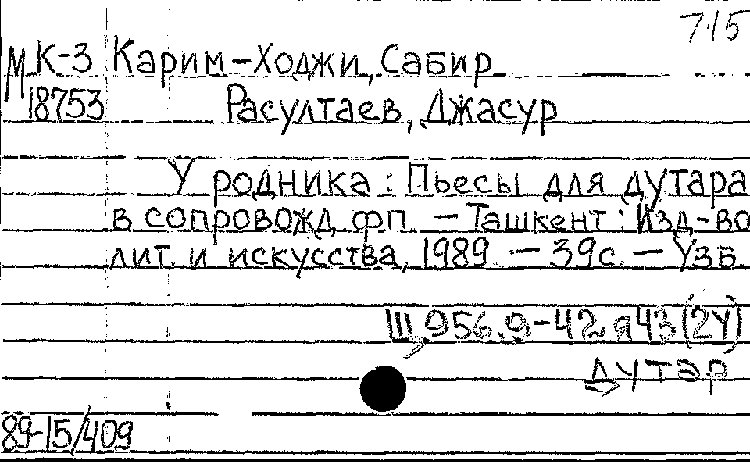 715
М К-3 Карим-Ходжи, Сабир
18753 Расултаев, Джасур
У родника : Пьесы для дутара
в сопровожд. фп. – Ташкент : Изд-во
лит. и искусства, 1989. – 39с. – Узб.
Щ956.9-42я43(2У)
дутар
89-15/409